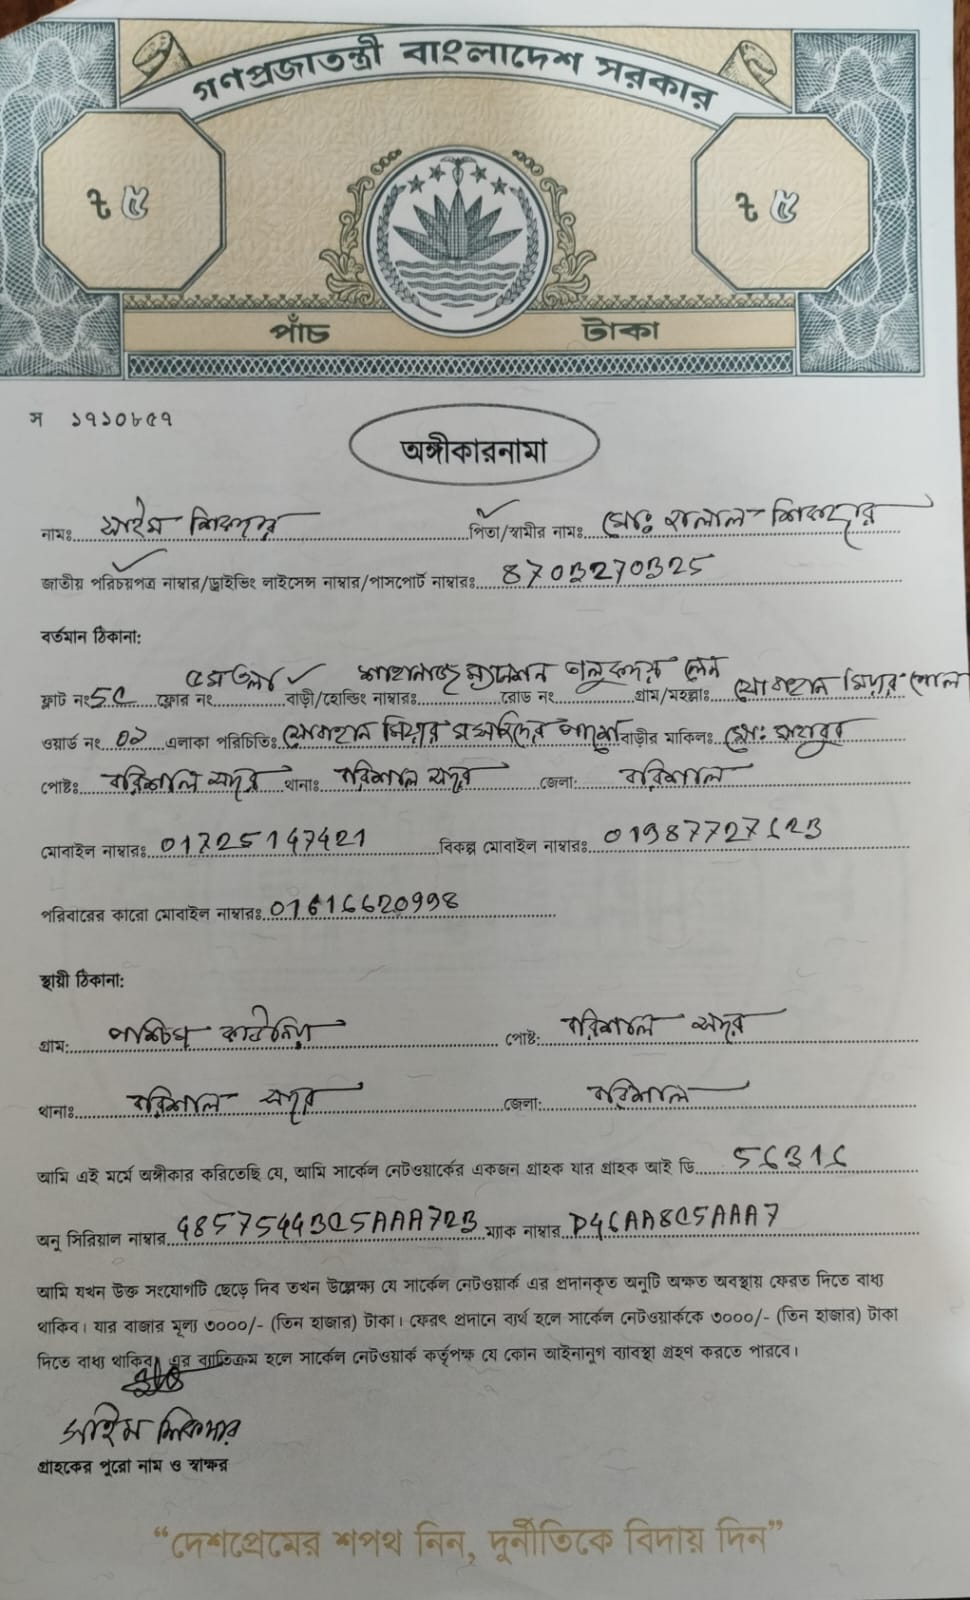 গণপ্রজাতন্ত্রী বাংলাদেশ সরকার
৳ ৫ ৳ ৫
পাঁচ টাকা
স ১৭১০৮৫৭
অঙ্গীকারনামা
নামঃ সাইম শিকদার পিতা/স্বামীর নামঃ মোঃ হালাল শিকদার
জাতীয় পরিচয়পত্র নাম্বার/ড্রাইভিং লাইসেন্স নাম্বার/পাসপোর্ট নাম্বারঃ 8703270325
বর্তমান ঠিকানা:
ফ্লাট নং 5C ফ্লোর নং ৫ম তলা বাড়ী/হোল্ডিং নাম্বারঃ শাহনাজ ম্যানশন রোড নং তালুকদার লেন গ্রাম/মহল্লাঃ গোরস্থান মিয়ার পোল
ওয়ার্ড নং 01 এলাকা পরিচিতিঃ মিয়ার মসজিদের পাশে বাড়ীর মালিকঃ মোঃ
পোষ্টঃ বরিশাল সদর থানাঃ বরিশাল সদর জেলা: বরিশাল
মোবাইল নাম্বারঃ 01725147421 বিকল্প মোবাইল নাম্বারঃ 01987727623
পরিবারের কারো মোবাইল নাম্বারঃ 01616620998
স্থায়ী ঠিকানা:
গ্রাম: পশ্চিম কাউনিয়া পোষ্ট: বরিশাল সদর
থানাঃ বরিশাল সদর জেলা: বরিশাল
আমি এই মর্মে অঙ্গীকার করিতেছি যে, আমি সার্কেল নেটওয়ার্কের একজন গ্রাহক যার গ্রাহক আই ডি 56316
অনু সিরিয়াল নাম্বার 48575443C5AAA72B ম্যাক নাম্বার D46AA8C5AAA7
আমি যখন উক্ত সংযোগটি ছেড়ে দিব তখন উল্লেক্ষ্য যে সার্কেল নেটওয়ার্ক এর প্রদানকৃত অনুটি অক্ষত অবস্থায় ফেরত দিতে বাধ্য
থাকিব। যার বাজার মূল্য ৩০০০/- (তিন হাজার) টাকা। ফেরৎ প্রদানে ব্যর্থ হলে সার্কেল নেটওয়ার্ককে ৩০০০/- (তিন হাজার) টাকা
দিতে বাধ্য থাকিব। এর ব্যতিক্রম হলে সার্কেল নেটওয়ার্ক কর্তৃপক্ষ যে কোন আইনানুগ ব্যাবস্থা গ্রহণ করতে পারবে।
সাইম শিকদার
গ্রাহকের পুরো নাম ও স্বাক্ষর
“দেশপ্রেমের শপথ নিন, দুর্নীতিকে বিদায় দিন”